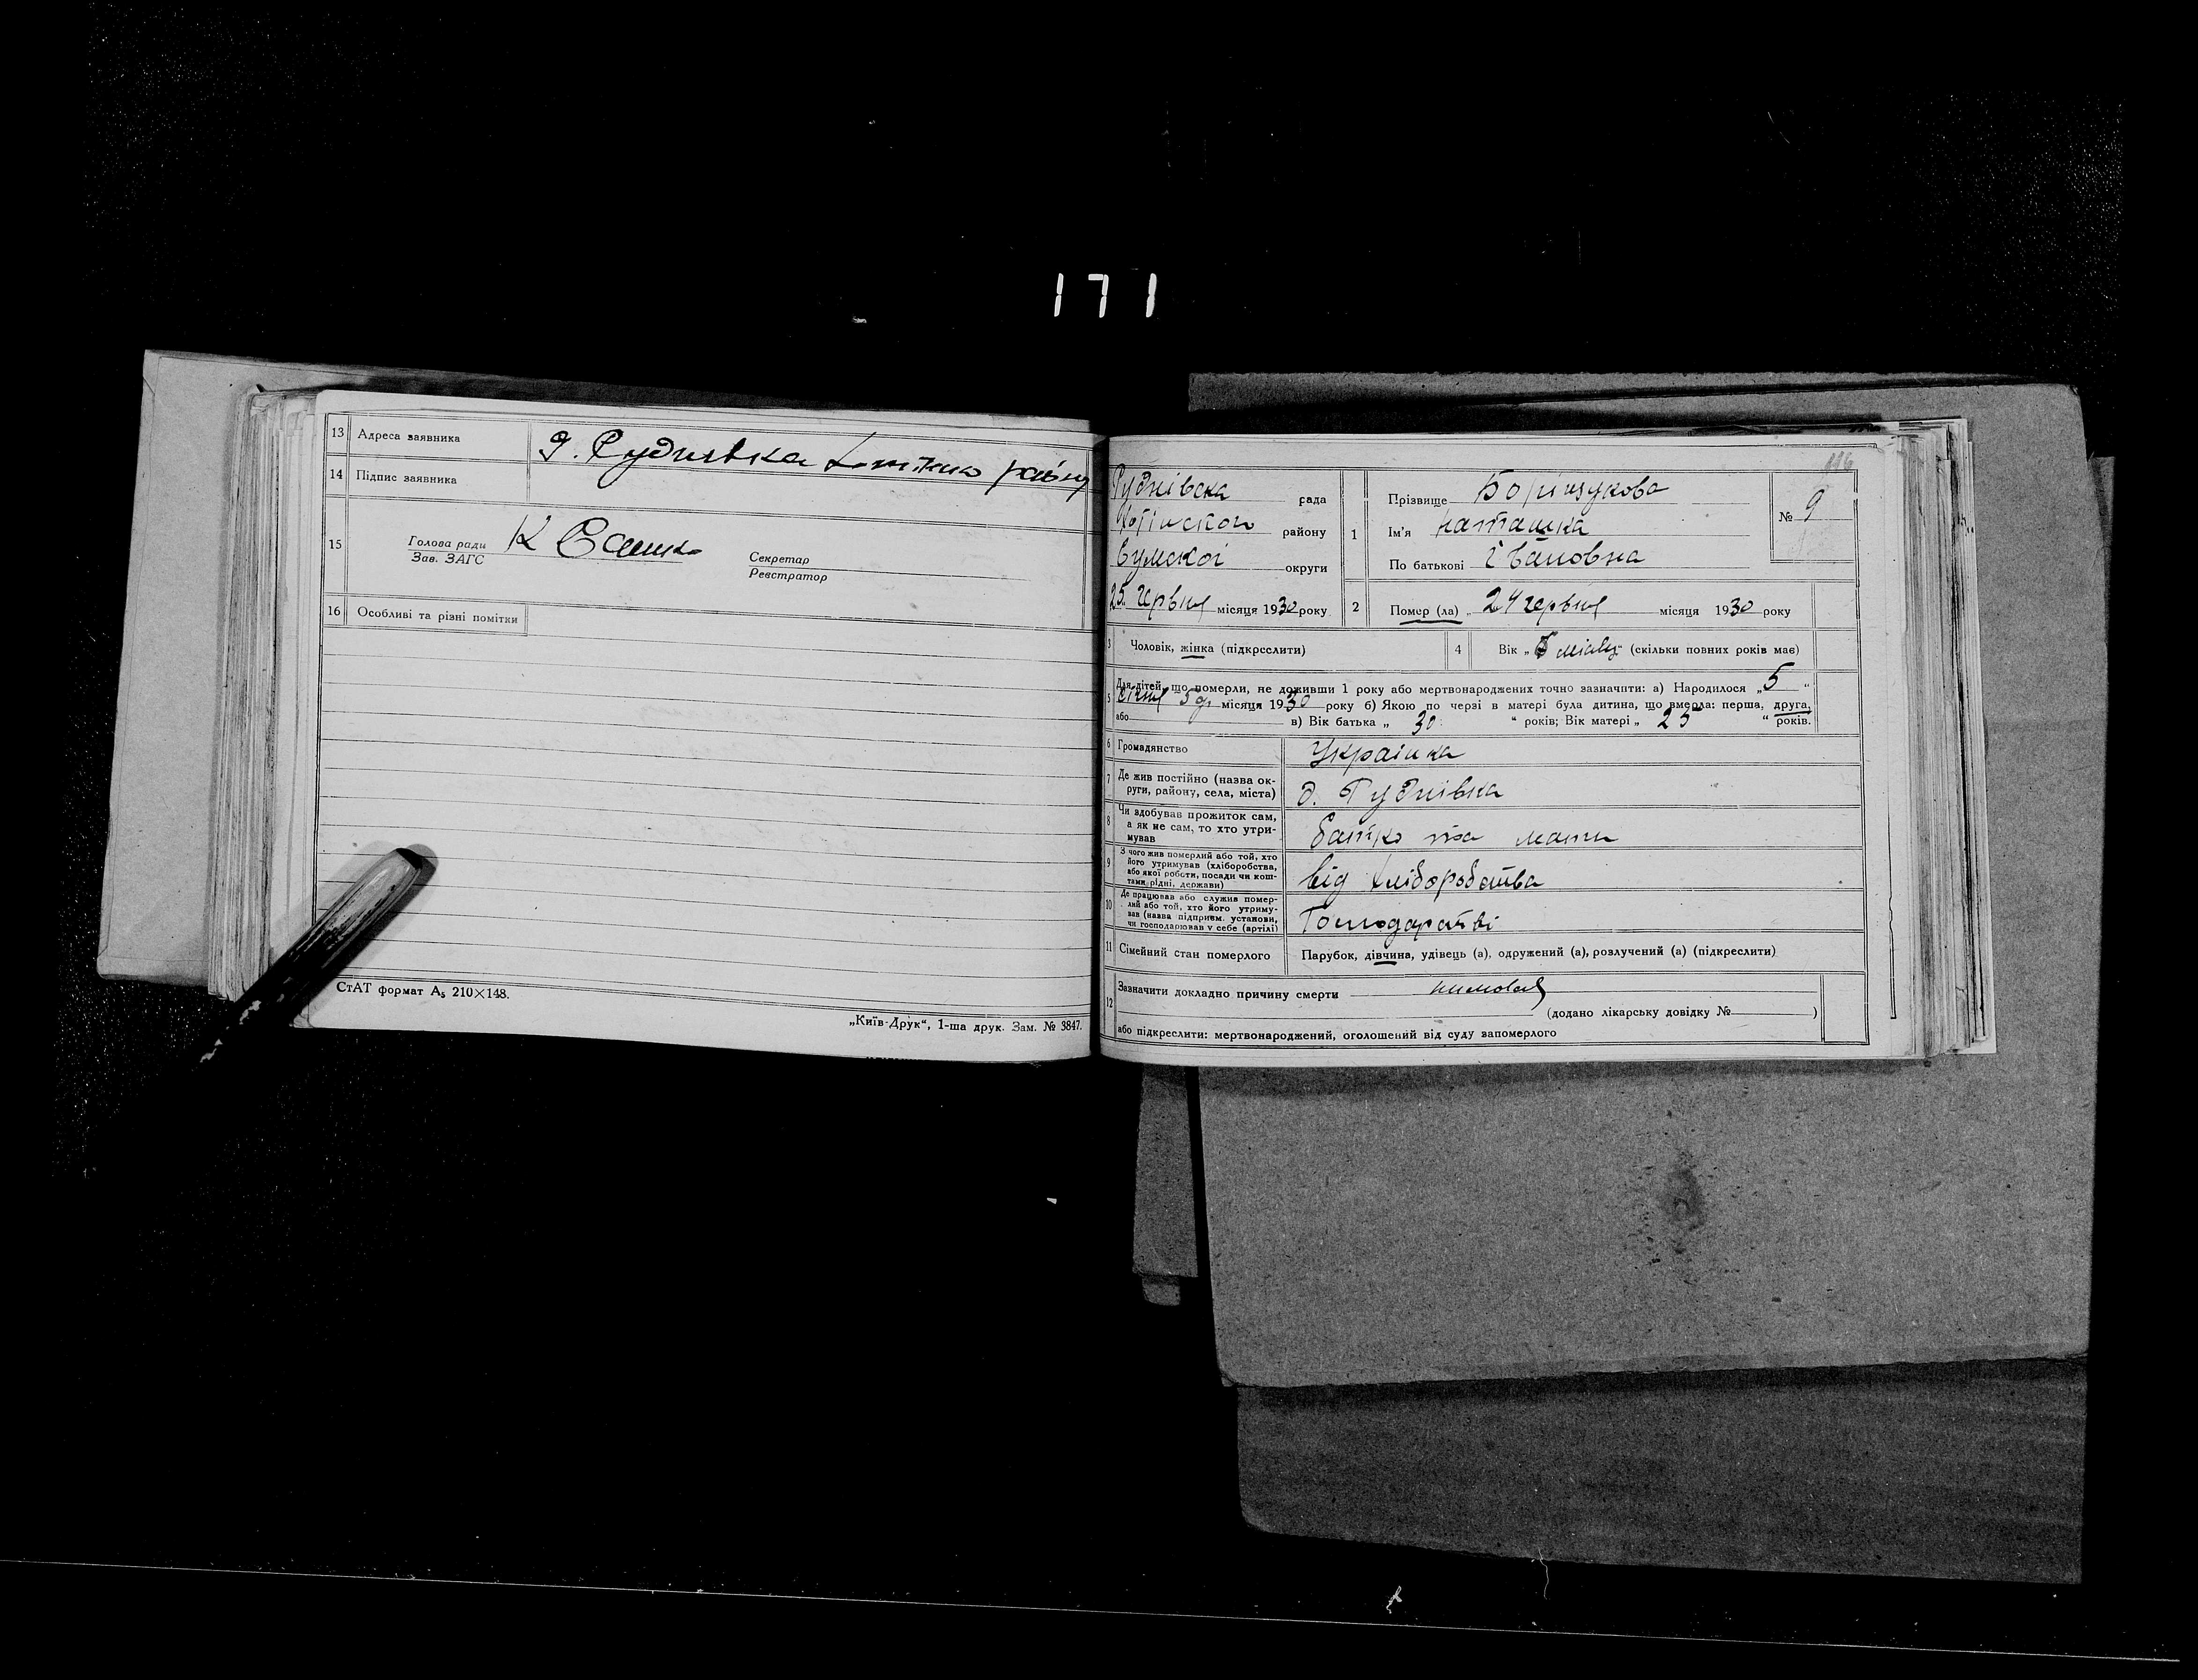 171
13 Адреса заявника д. Руднєвка Хотінско району
14 Підпис заявника
15 Голова ради
Зав. ЗАГС
Секретар
Реєстратор
16 Особливі та різні помітки
СтАТ формат А₅ 210×148.
„Київ-Друк“, 1-ша друк. Зам. № 3847.
116
Руднівска рада
Хотінскои району
Сумскоі округи
25 червня місяця 1930 року
1 Прізвище
Ім'я Наташка
По батькові Івановна
№ 9
2 Помер (ла) „ 24 червня місяця 1930 року
3 Чоловік, жінка (підкреслити)
4 Вік „ 5 місяц “ (скільки повних років має)
5 Для дітей, що померли, не доживши 1 року або мертвонароджених точно зазначити: а) Народилося „ 5 “
Січня 5 д. місяця 1930 року б) Якою по черзі в матері була дитина, що вмерла: перша, друга,
або в) Вік батька „ 30 “ років; Вік матері „ 25 “ років.
6 Громадянство Украінка
7 Де жив постійно (назва ок-
руги, району, села, міста) д. Руднівка
8 Чи здобував прожиток сам,
а як не сам, то хто утри-
мував батько та мати
9 З чого жив померлий або той, хто
його утримував (хліборобства,
або якої роботи, посади чи кош-
тами рідні, держави) від хліборобства
10 Де працював або служив помер-
лий або той, хто його утриму-
вав (назва підприєм. установи,
чи господарював у себе (артілі) Господарстві
11 Сімейний стан померлого Парубок, дівчина, удівець (а), одружений (а), розлучений (а) (підкреслити)
12 Зазначити докладно причину смерти
(додано лікарську довідку № )
або підкреслити: мертвонароджений, оголошений від суду запомерлого